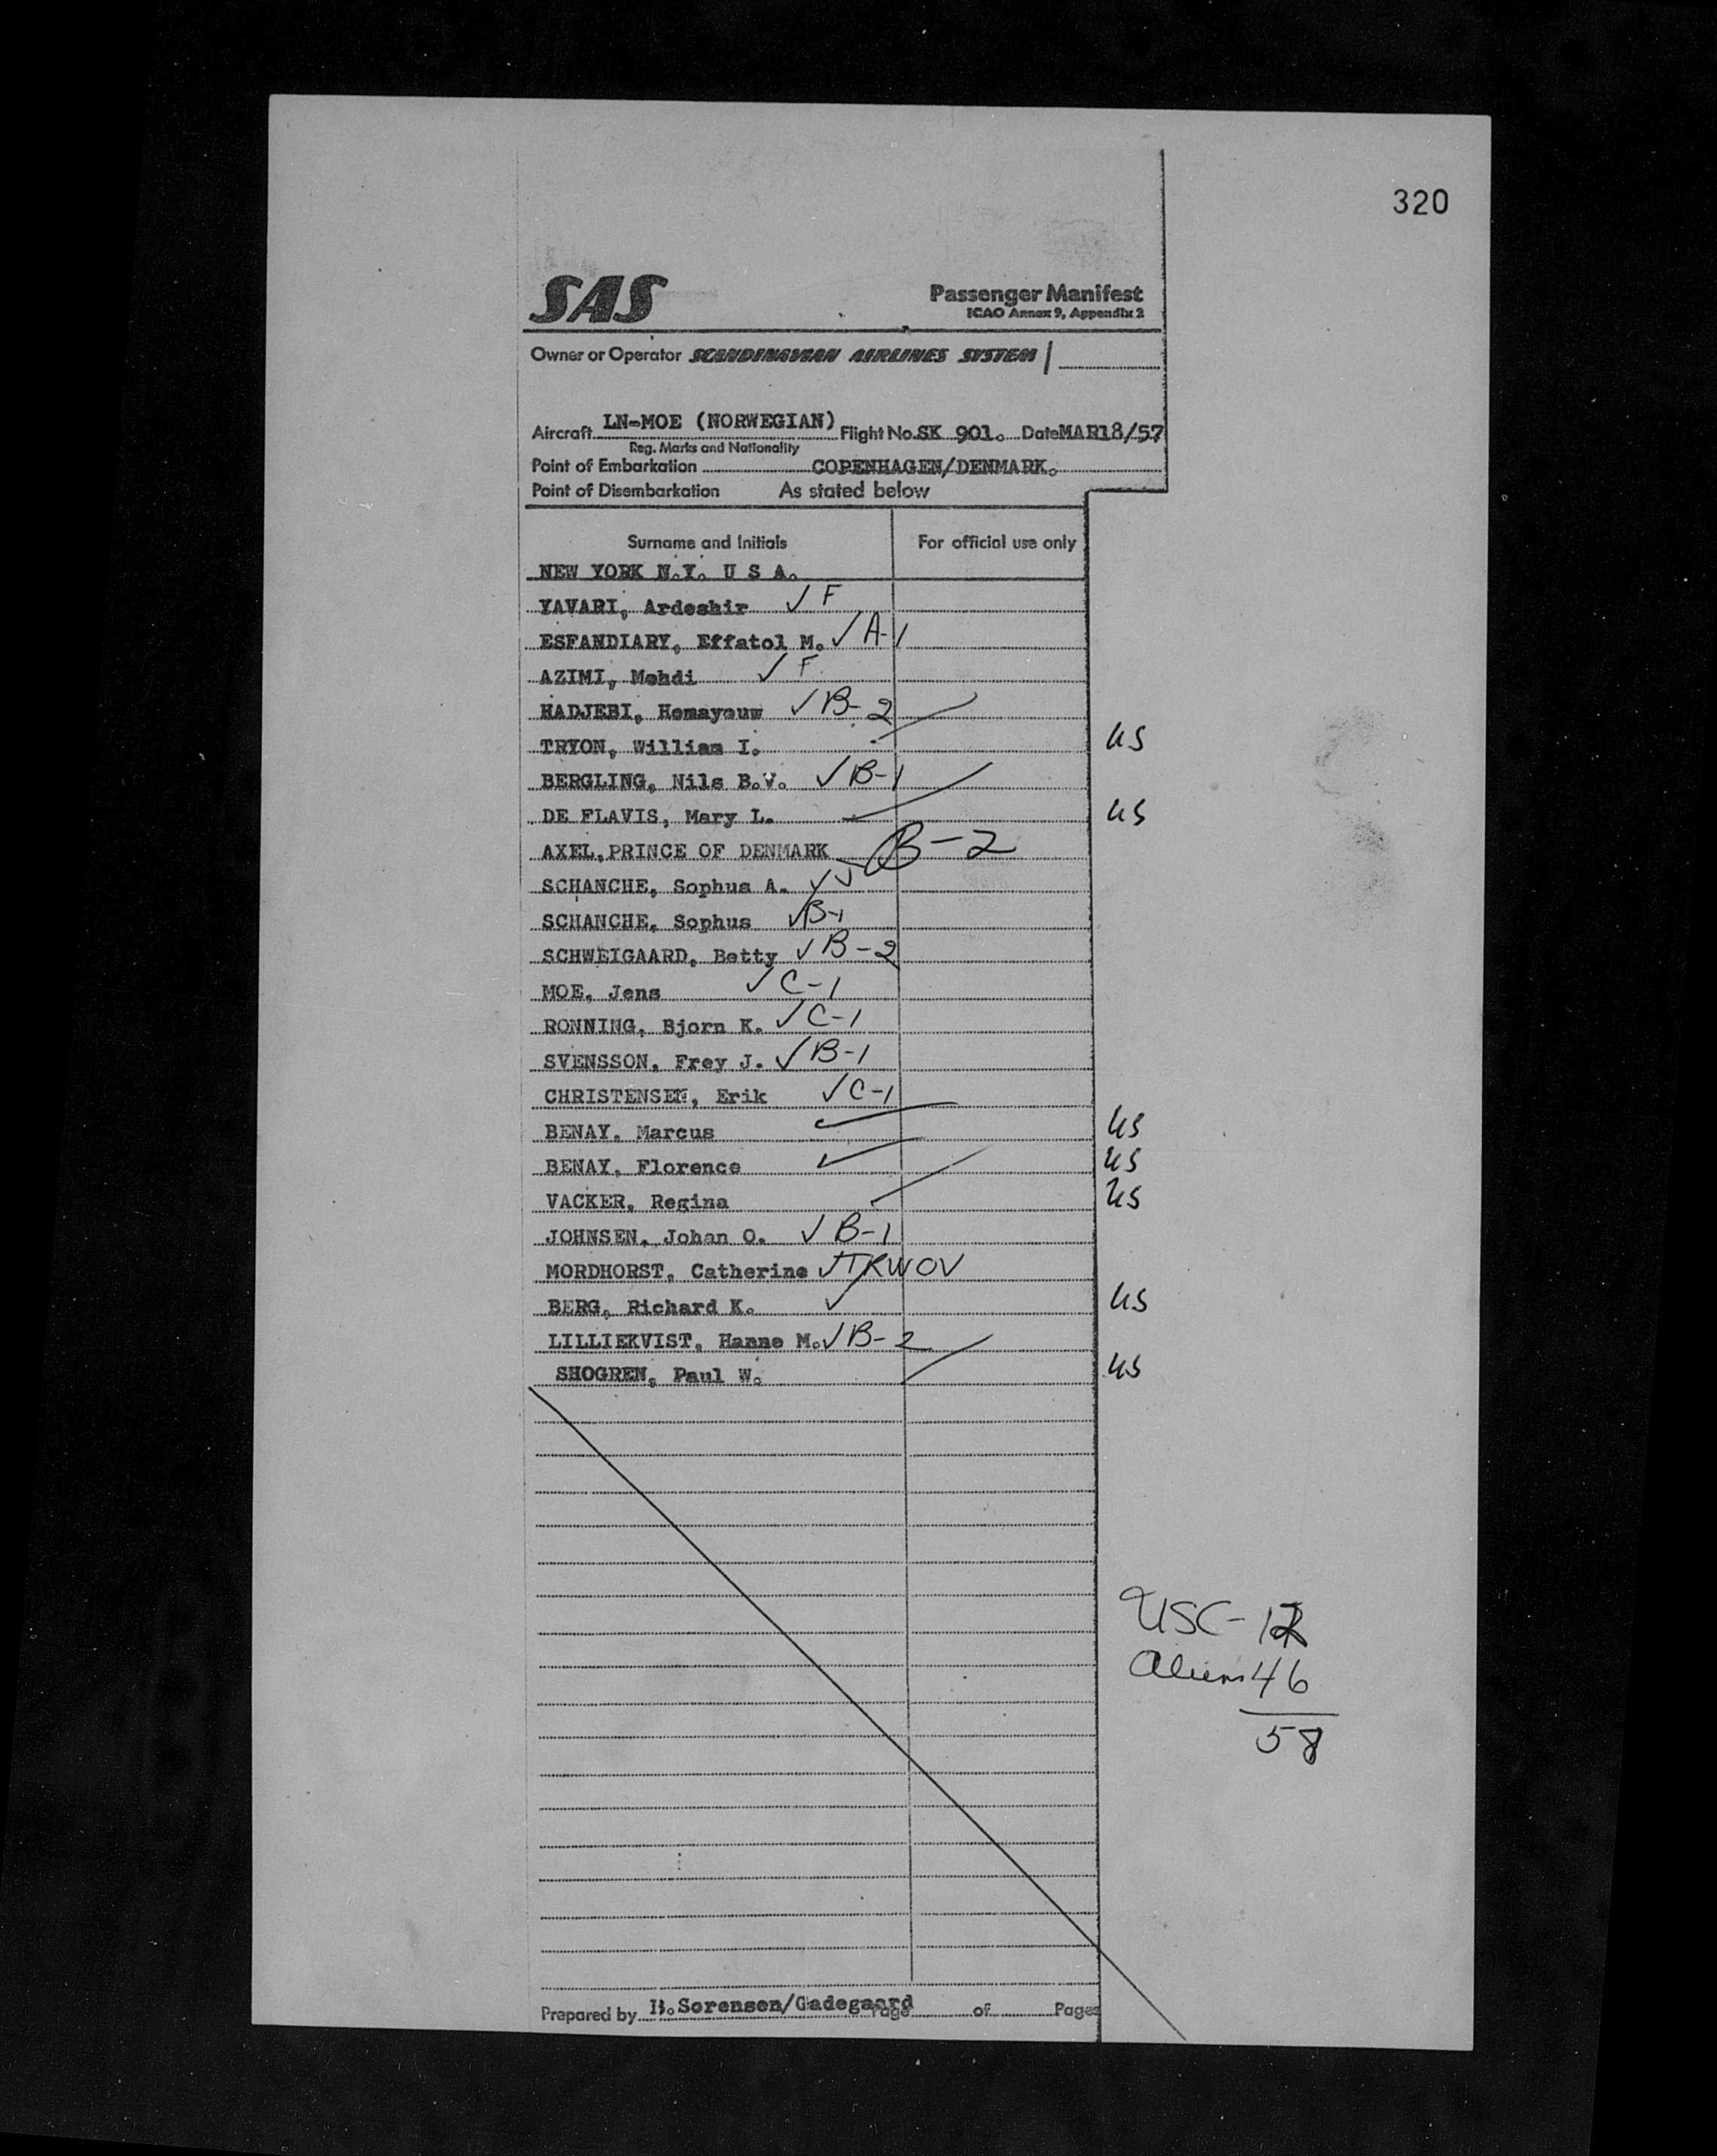 320
SAS
Passenger Manifest
ICAO Annex 9, Appendix 2
Owner or Operator SCANDINAVIAN AIRLINES SYSTEM
Aircraft LN-MOE (NORWEGIAN) Flight No. SK 901. Date MAR18/57
Reg. Marks and Nationality
Point of Embarkation COPENHAGEN/DENMARK.
Point of Disembarkation As stated below
Surname and Initials For official use only
NEW YORK N.Y. U S A.
YAVARI, Ardeshir ✓ F
ESFANDIARY, Effatol M. ✓ A-1
AZIMI, Mehdi ✓ F
HADJEBI, Homayoum ✓ B-2
TRYON, William I. US
BERGLING, Nils B.V. ✓ B-1
DE FLAVIS, Mary L. US
AXEL, PRINCE OF DENMARK B-2
SCHANCHE, Sophus A. ✓
SCHANCHE, Sophus ✓ B-1
SCHWEIGAARD, Betty ✓ B-2
MOE, Jens ✓ C-1
RONNING, Bjorn K. ✓ C-1
SVENSSON, Frey J. ✓ B-1
CHRISTENSEN, Erik ✓ C-1
BENAY, Marcus ✓ US
BENAY, Florence ✓ US
VACKER, Regina US
JOHNSEN, Johan O. ✓ B-1
MORDHORST, Catherine ✓ TRWOV
BERG, Richard K. ✓ US
LILLIEKVIST, Hanne M. ✓ B-2
SHOGREN, Paul W. US
USC - 12
Aliens 46
58
Prepared by B. Sorensen/Gadegaard Page of Pages